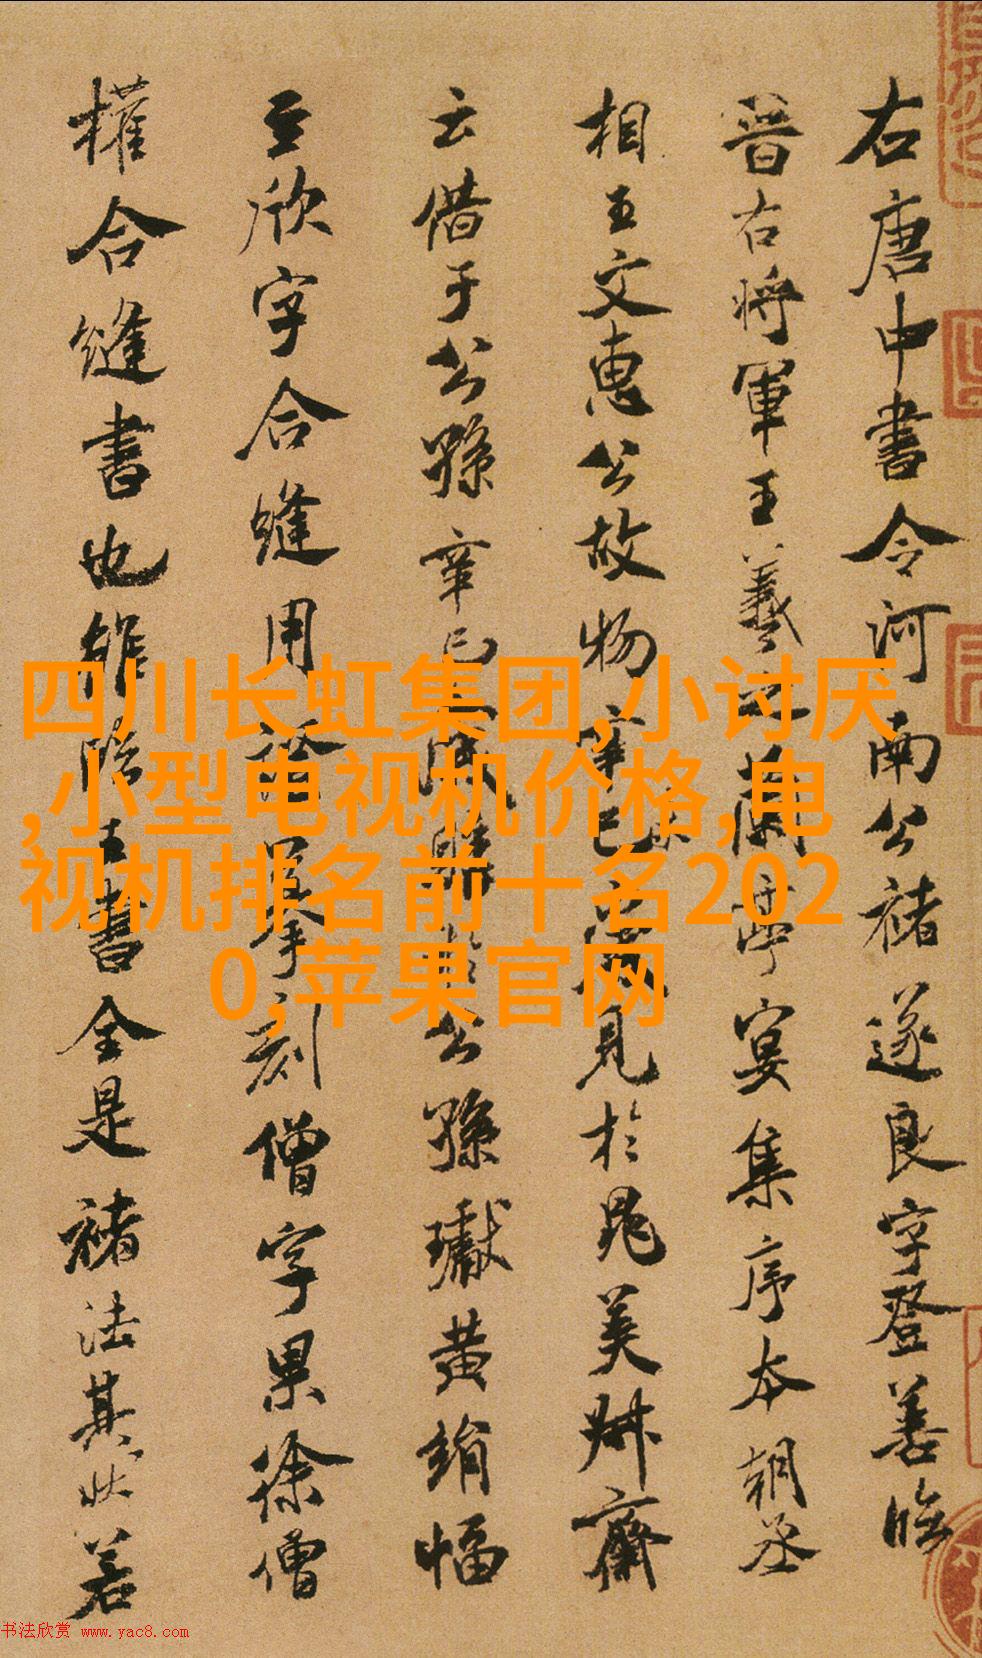 右唐中書令河南公褚遂良字登善臨
晉右將軍王羲之蘭亭宴集序本朝丞
相王文惠公故物辛巳歲見於晁美叔齋
云借于公孫辛巳歲購於公孫瓛黄絹幅
至欣字合縫用證摹刻僧字果徐僧
權合縫書也雖臨王書全是褚法其狀若
四川长虹集团,小讨厌
,小型电视机价格,电
视机排名前十名202
0,苹果官网
书法欣赏 www.yac8.com